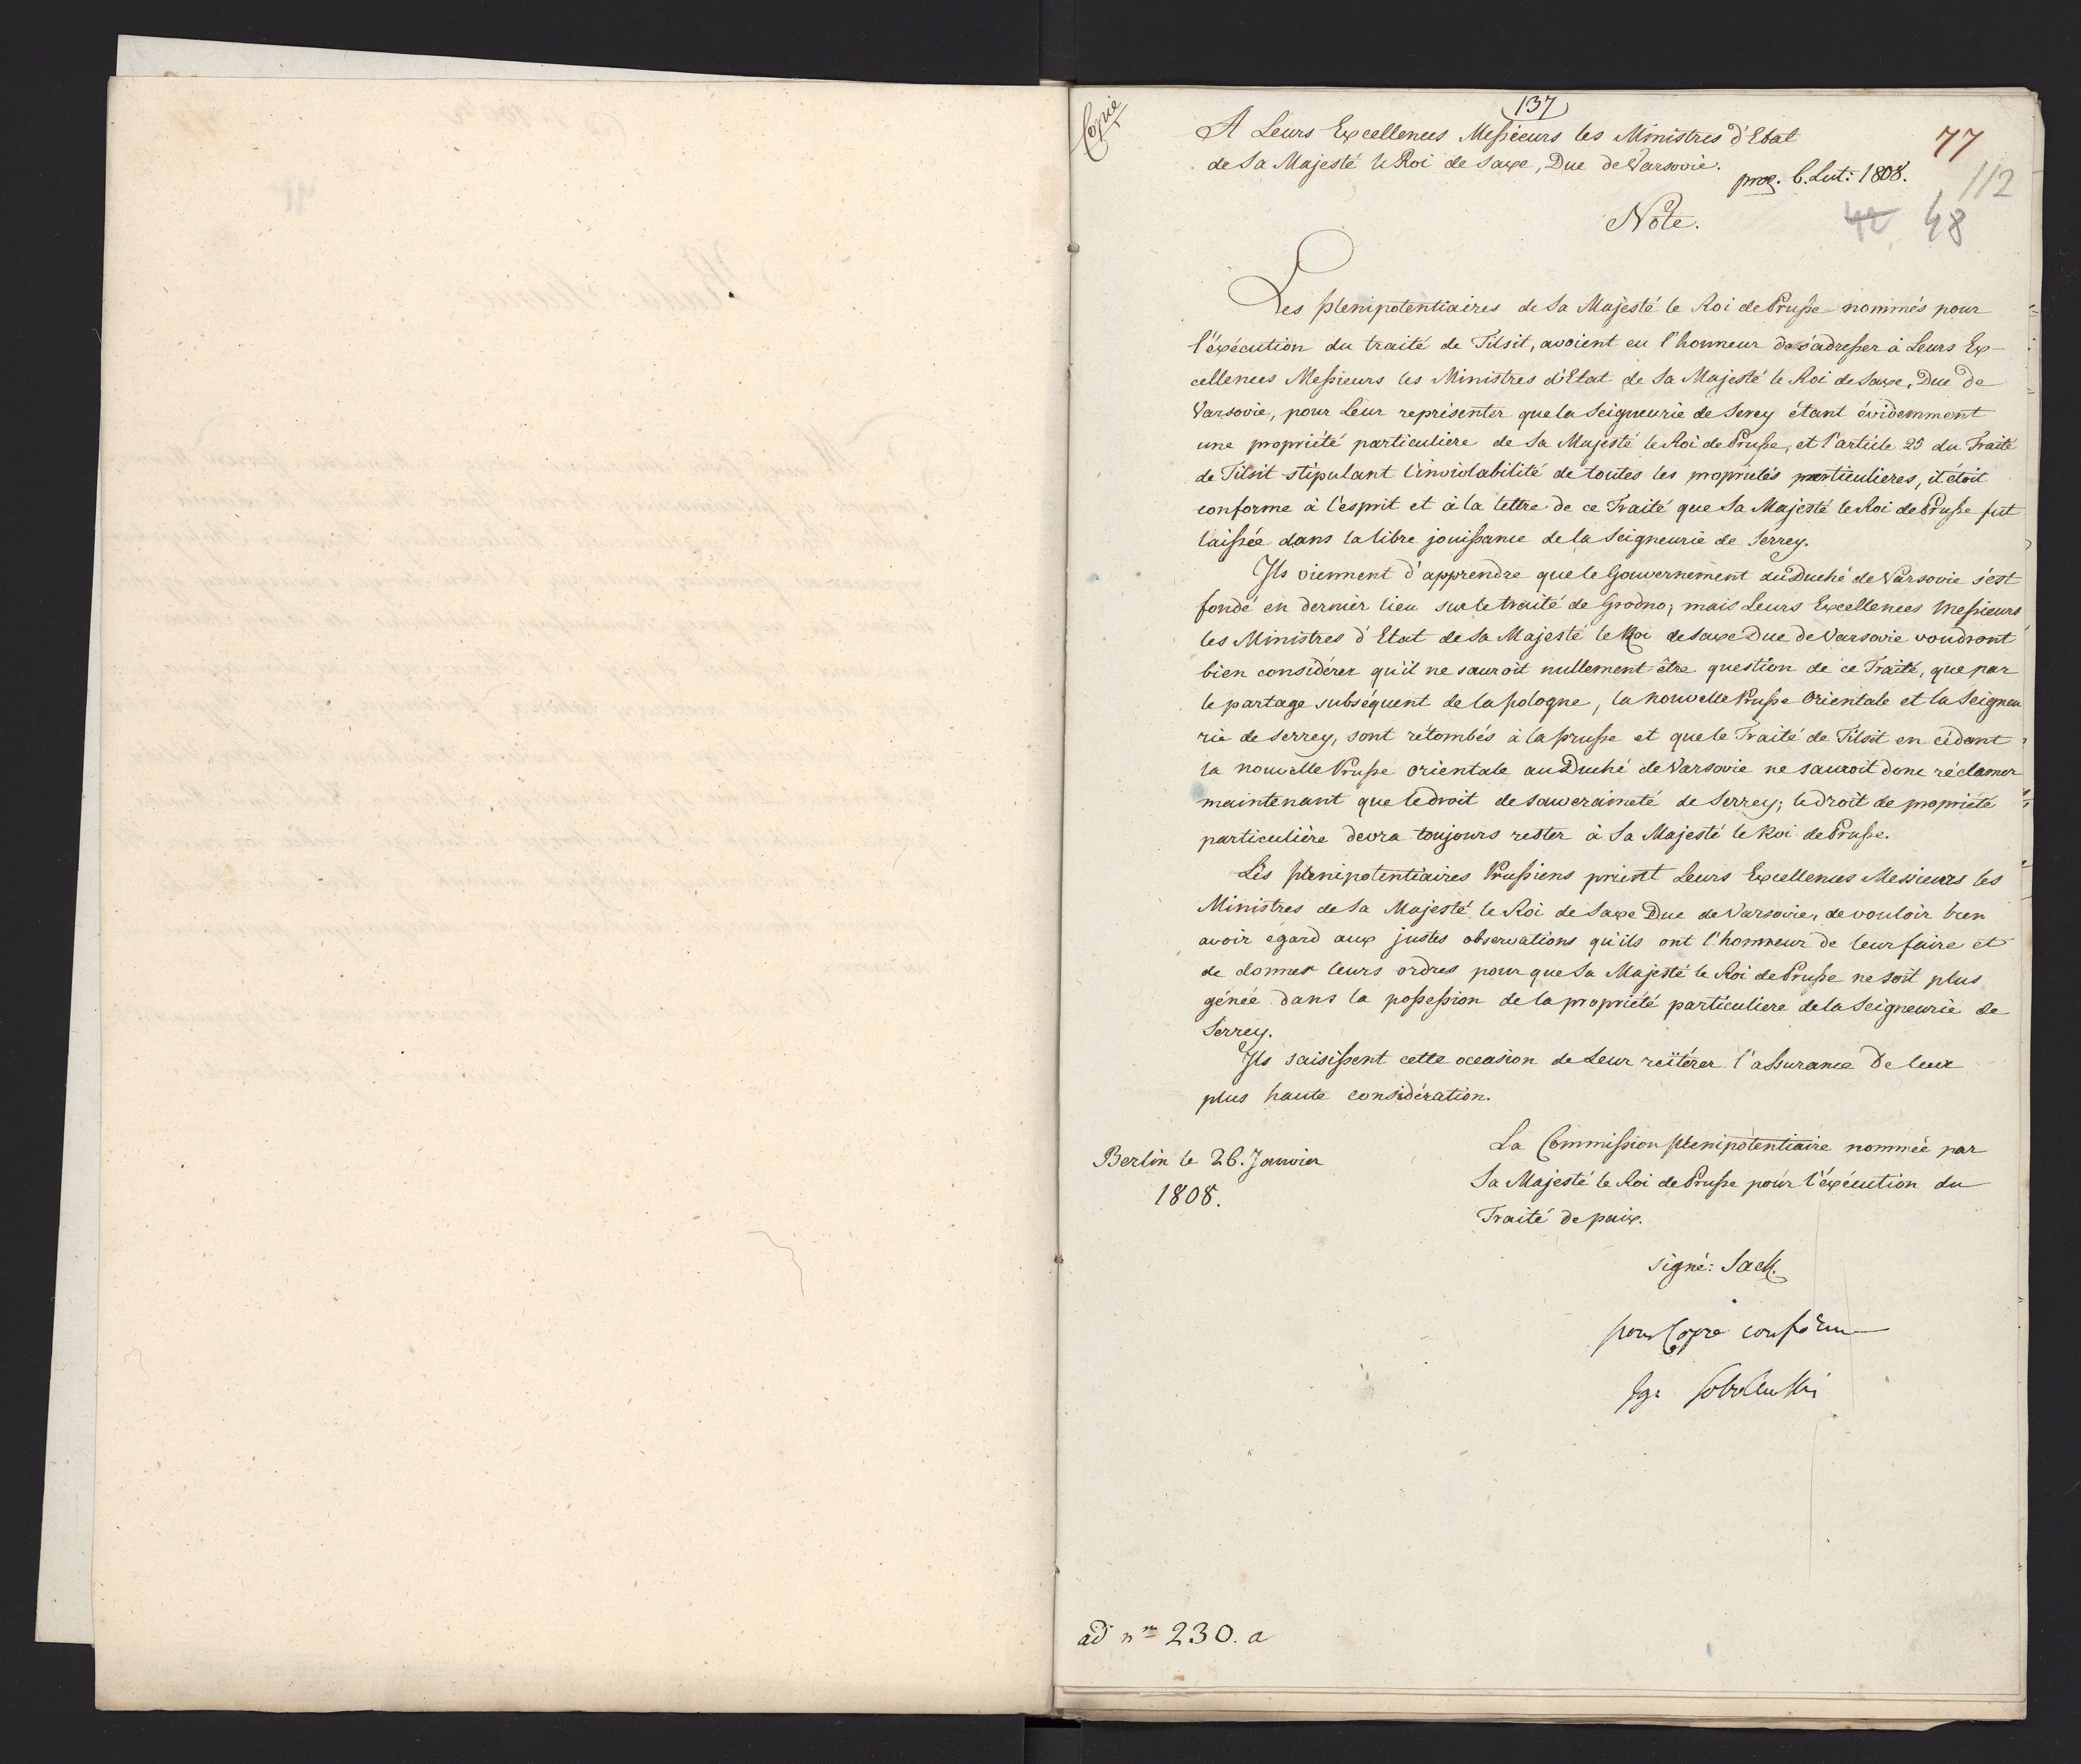 Copie
137
A Leurs Excellences Messieurs les Ministres d'Etat
de Sa Majesté le Roi de Saxe, Duc de Varsovie.
77
prez. 6. Lut: 1808.
112
Note.
42 48
Les plenipotentiaires de Sa Majesté le Roi de Prusse nommés pour
l'éxécution du traité de Tilsit, avoient eu l'honneur de s'adresser à Leurs Ex-
cellences Messieurs les Ministres d'Etat de Sa Majesté le Roi de Saxe, Duc de
Varsovie, pour Leur représenter que la Seigneurie de Serey étant évidemment
une propriété particuliere de Sa Majesté le Roi de Prusse, et l'article 25 du Traité
de Tilsit stipulant l'inviolabilité de toutes les propriétés particulieres, il étoit
conforme à l'esprit et à la lettre de ce Traité que Sa Majesté le Roi de Prusse fut
laissée dans la libre jouissance de la Seigneurie de Serrey.
Ils viennent d'apprendre que le Gouvernement du Duché de Varsovie s'est
fondé en dernier lieu sur le traité de Grodno; mais Leurs Excellences Messieurs
les Ministres d'Etat de Sa Majesté le Roi de Saxe Duc de Varsovie voudront
bien considérer qu'il ne sauroit nullement être question de ce Traité, que par
le partage subséquent de la pologne, la nouvelle Prusse Orientale et la Seigneu
rie de Serrey, sont rétombés à la prusse et que le Traité de Tilsit en cédant
la nouvelle Prusse orientale au Duché de Varsovie ne sauroit donc réclamer
maintenant que le droit de souveraineté de Serrey; le droit de propriété
particulière devra toujours rester à Sa Majesté le Roi de Prusse.
Les plenipotentiaires Prussiens prient Leurs Excellences Messieurs les
Ministres de Sa Majesté le Roi de Saxe Duc de Varsovie, de vouloir bien
avoir egard aux justes observations qu'ils ont l'honneur de leur faire et
de donner leurs ordres pour que Sa Majesté le Roi de Prusse ne soit plus
génée dans la possession de la propriété particuliere de la Seigneurie de
Serrey.
Ils saisissent cette occasion de Leur reïtérer l'assurance De leur
plus haute considération.
Berlin le 26. Janvier
1808.
La Commission plenipotentiaire nommée par
Sa Majesté le Roi de Prusse pour l'éxécution du
Traité de paix.
signé: Sack.
pour Copie conforme
Sobolewski
ad nm 230. a